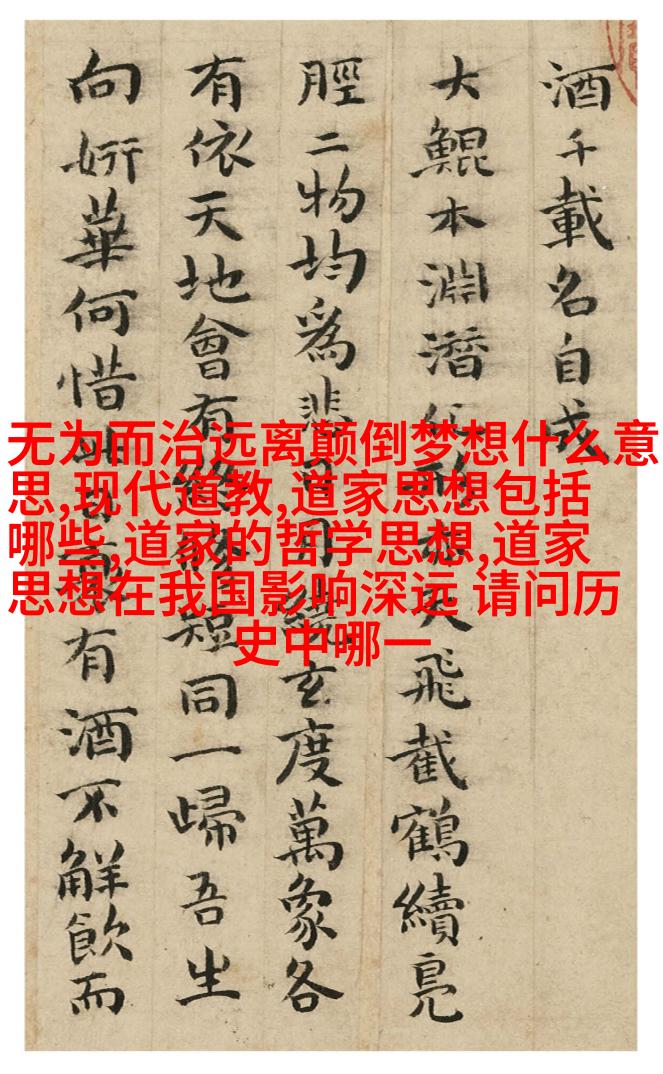 酒千載名自
大鯤本淵潛天飛截鶴續鳧
脛二物均爲悲玄度萬象各
有依天地會有短同一歸吾生
向妍華何惜有酒不觧飲而
无为而治远离颠倒梦想什么意
思,现代道教,道家思想包括
哪些,道家的哲学思想,道家
思想在我国影响深远 请问历
史中哪一